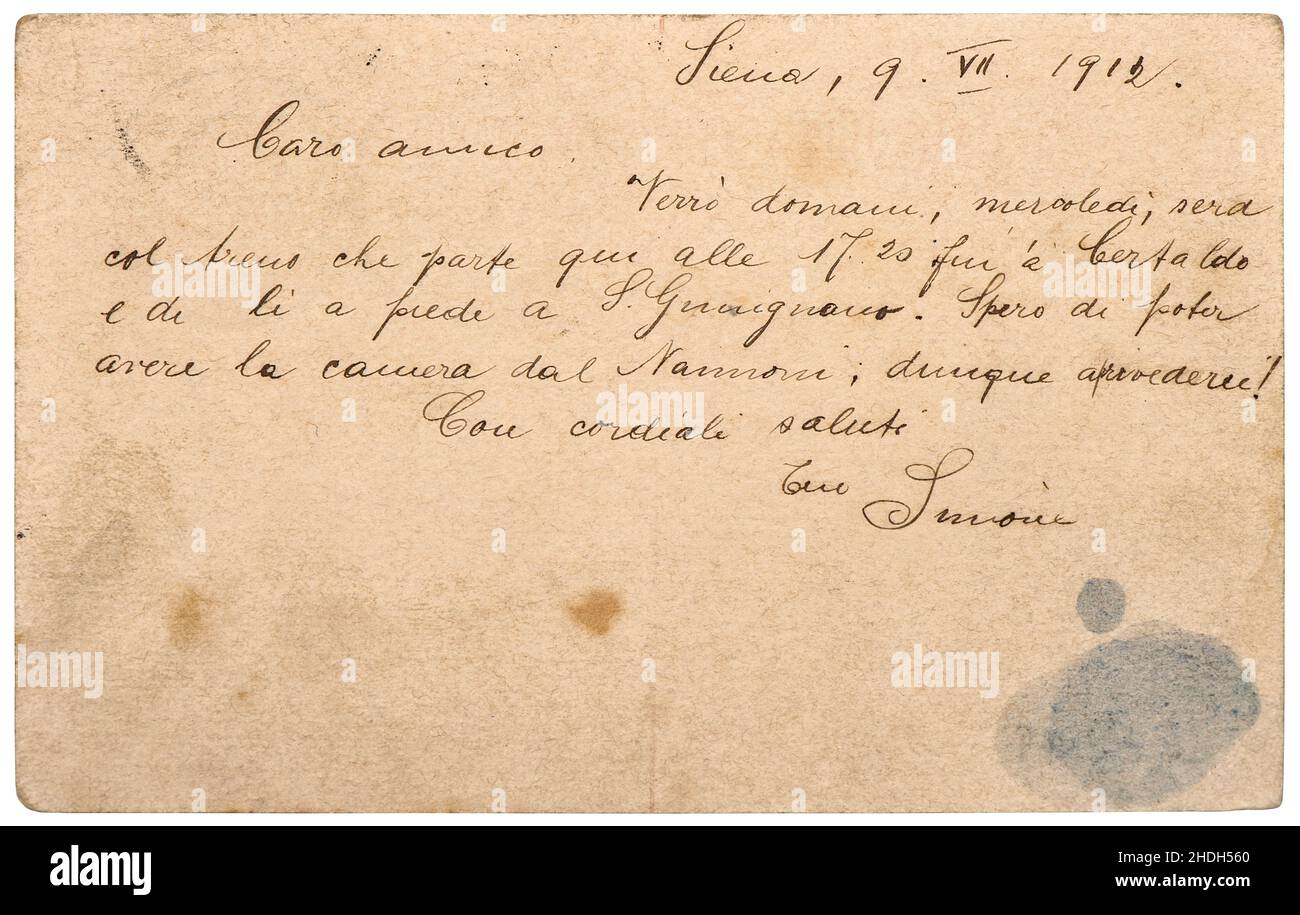 Siena, 9. VII. 1912.
Caro amico.
Verrò domani, mercoledì, sera
col treno che parte qui alle 17.20 fin' a Certaldo
e di lì a piede a S. Gimignano. Spero di poter
avere la camera dal Nannoni; dunque arrivederci!
Con cordiali saluti
tuo Simone
alamy
Image ID: 2HDH560
www.alamy.com